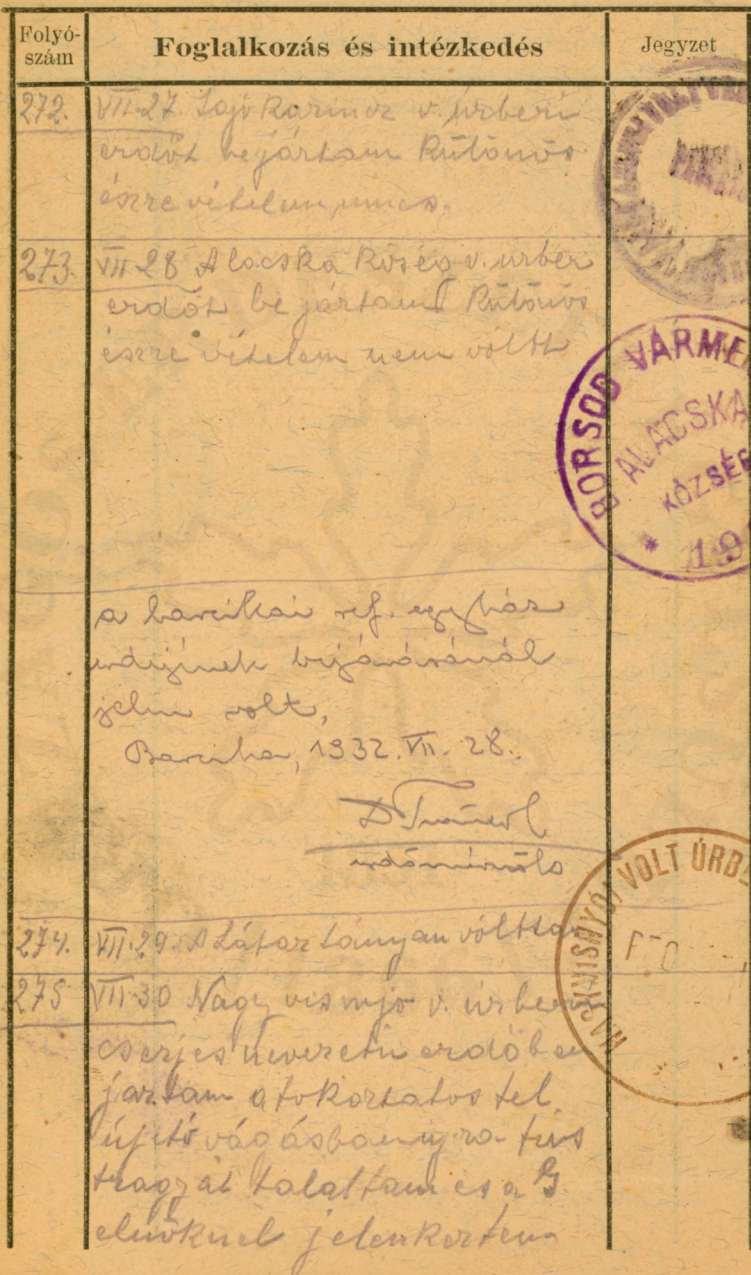 Folyó-
szám
Foglalkozás és intézkedés
Jegyzet
272. VII.27. Sajó Karincz v. úrberi
erdőt bejártam Kűlönös
észre vételem nincs.
273. VII 28 Alacska Község v. urber
erdőt be jártam Kűlönös
észre vételem nem vóltt
BORSOD VÁRME
ALACSKA
KÖZSÉG
* 19
a barcikai ref. egyház
erdejének bejárásánál
jelen volt,
Barcika, 1932. VII. 28.
erdőmérnök
274. VII.29. A Látar tányan vólttam
275 VII 30 Nagy visnyó v. úrberi
cserjes nevezetű erdőben
jártam
újító vágásban
tragyát talaltam es a G
elnöknel jelenkeztem
NAGYVISNYÓI VOLT ÚRBÉ